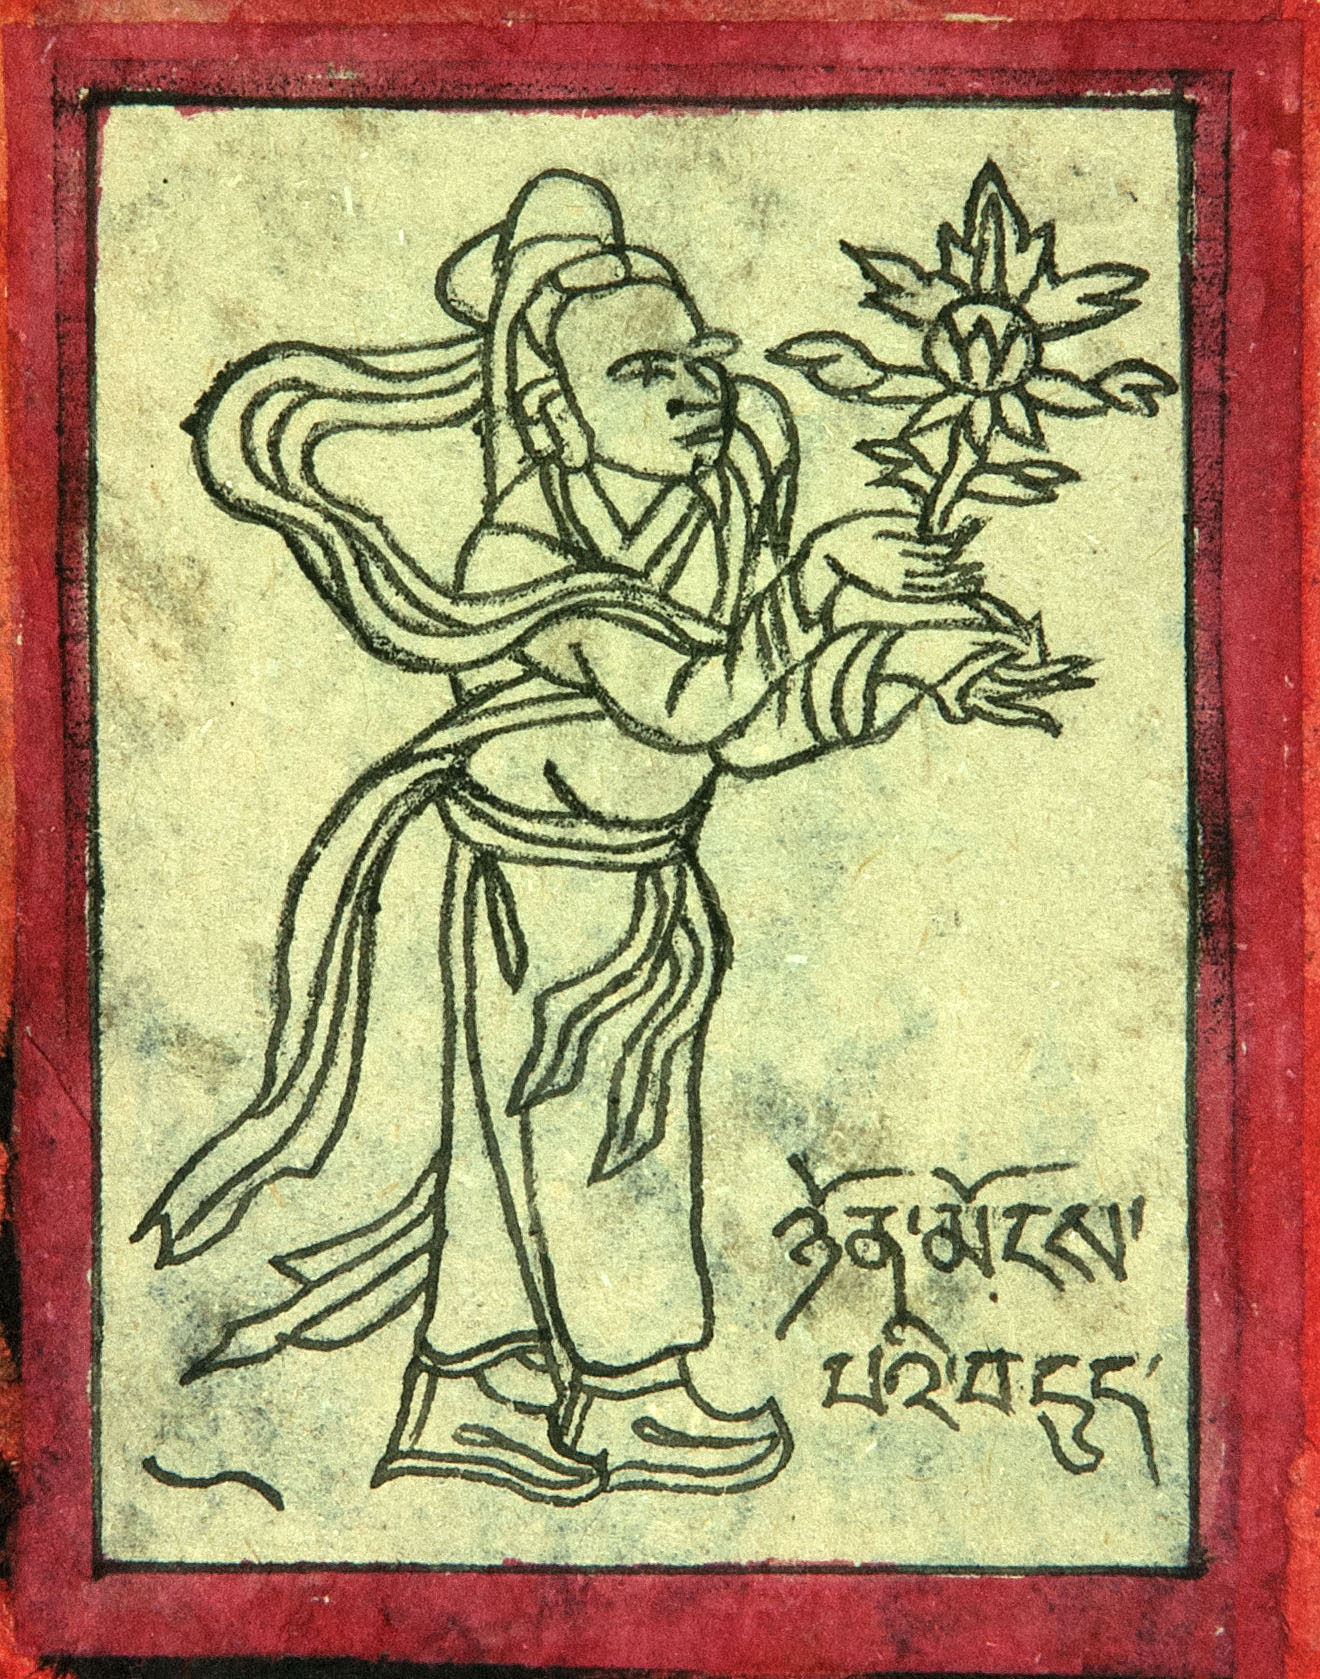 ཉོན་མོངས་
པའི་བདུད་